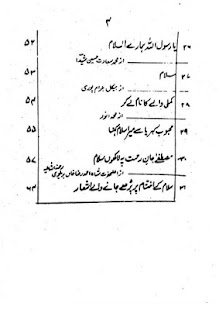 ۴
۲۶ یا رسول اللہ ہمارے السلام ۵۲
از محمد سعادت حسین
۲۷ سلام ۵۳
از بیکل بلرام پوری
۲۸ کملی والے کا نام لے کر ۵۴
از محمد انور
۲۹ محبوب کبریا سے میرا سلام کہنا ۵۵
۳۰ مصطفےٰ جان رحمت پہ لاکھوں سلام ۵۷
از اعلحضرت شاہ احمد رضا خاں بریلوی
۳۱ سلام کے اختتام پر پڑھے جانے والے اشعار ۶۳